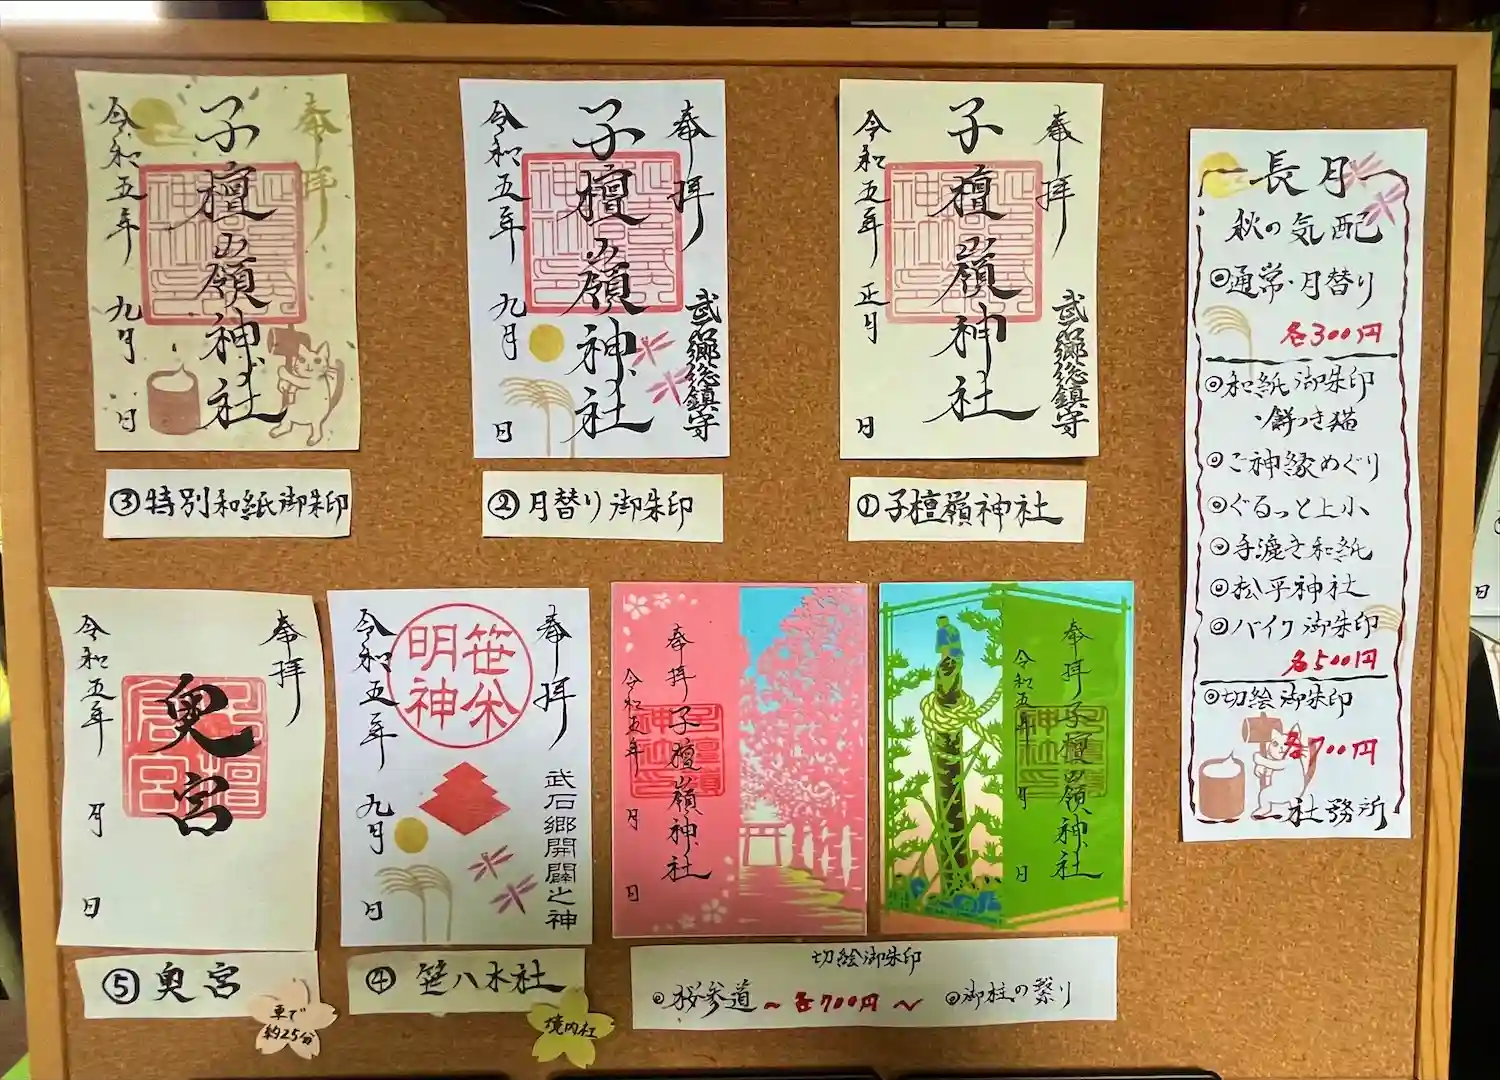 奉拝
子檀嶺神社
武石郷総鎮守
令和五年 正月 日
①子檀嶺神社
奉拝
子檀嶺神社
武石郷総鎮守
令和五年 九月 日
②月替り御朱印
奉拝
子檀嶺神社
令和五年 九月 日
③特別和紙御朱印
奉拝
子檀嶺神社
令和五年 月 日
奉拝
子檀嶺神社
令和五年 月 日
切絵御朱印
◎桜参道 ~各700円~ ◎御柱の繋り
奉拝
笹焱
明神
武石郷開闢之神
令和五年 九月 日
④笹八木社
境内社
奉拝
奥宮
令和五年 月 日
⑤奥宮
車で
約25分
長月
秋の気配
◎通常・月替り
各300円
◎和紙御朱印
・餅つき猫
◎ご神縁めぐり
◎ぐるっと上小
◎手漉き和紙
◎松平神社
◎バイク御朱印
各500円
◎切絵御朱印
各700円
社務所